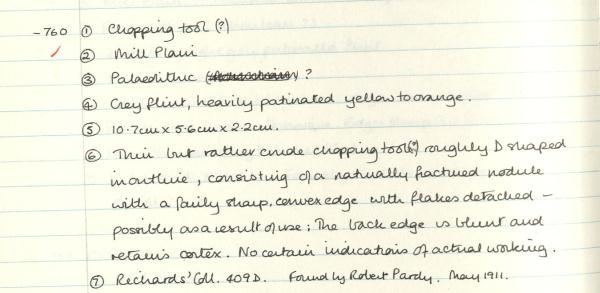 -760 ① Chopping tool (?)
② Mill Plain
③ Palaeolithic ?
④ Grey flint, heavily patinated yellow to orange.
⑤ 10.7cm x 5.6cm x 2.2cm.
⑥ Thin but rather crude chopping tool(?) roughly D shaped
in outline, consisting of a naturally fractured nodule
with a fairly sharp, convex edge with flakes detached –
possibly as a result of use; The back edge is blunt and
retains cortex. No certain indications of actual working.
⑦ Richards' Coll. 409D. Found by Robert Pardy. May 1911.